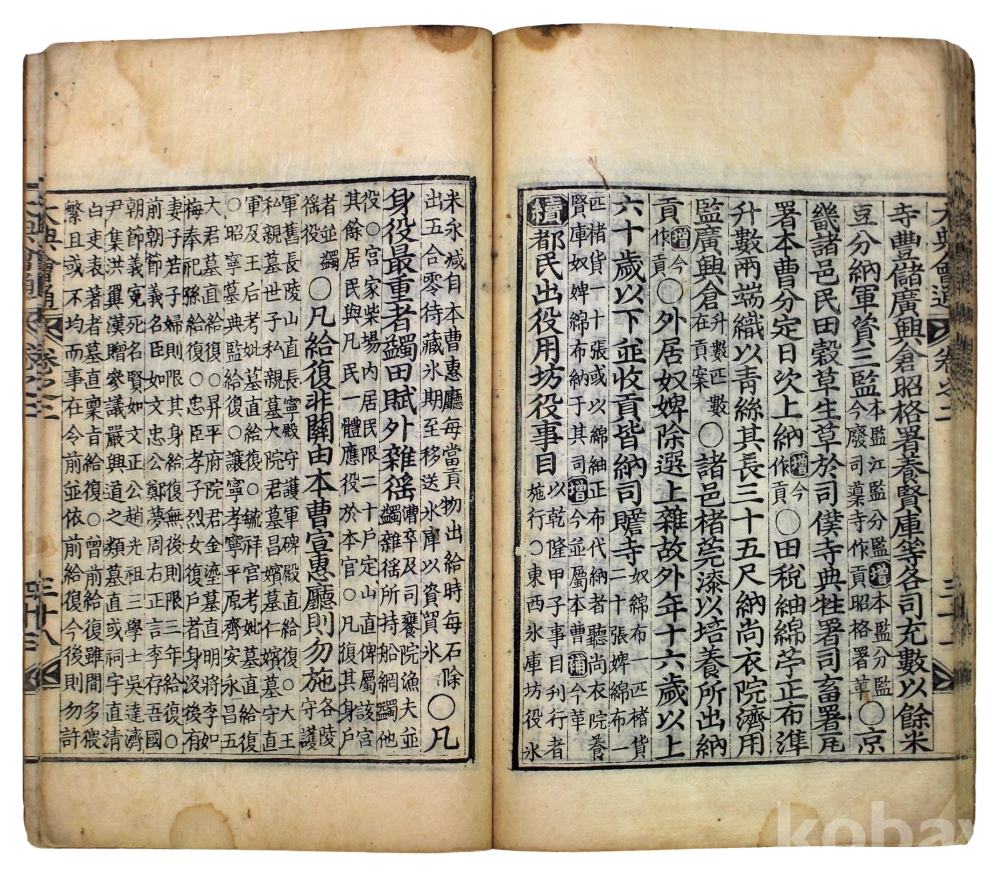 寺豊儲廣興倉昭格署養賢庫等各司充數以餘米
豆分納軍資三監
本監江監分監增本監分監
今廢司䆃寺作貢昭格署革
○京
畿諸邑民田穀草生草於司僕寺典牲署司畜署瓦
署本曹分定日次上納
增今
作貢
○田稅紬綿苧正布準
升數兩端織以靑絲其長三十五尺納尙衣院濟用
監廣興倉
升數匹數
在貢案
○諸邑楮莞漆以培養所出納
貢
增今
作貢
○外居奴婢除選上雜故外年十六歲以上
六十歲以下並收貢皆納司贍寺
奴綿布一匹楮貨
二十張婢綿布一
匹楮貨一十張或以綿紬正布代納者聽尙衣院養
賢庫奴婢綿布納于其司增今並屬本曹補今革
續都民出役用坊役事目
以乾隆甲子事目刊行者
施行○東西氷庫坊役氷
米永減自本曹惠廳每當貢物出給時每石除
出五合零待藏氷期至移送氷庫以資貿氷
○凡
身役最重者蠲田賦外雜徭
漕卒及司饔院漁夫並
蠲雜徭所持船網蠲他
役○宮家柴場內居民限二十戶定山直俾屬該宮
其餘居民與凡民一體應役於本官○凡復其身戶
者並蠲
徭役
○凡給復非關由本曹宣惠廳則勿施
各陵
守護
軍舊長陵山直長寧殿守護軍碑殿直給復○大王
私親世子私親墓大院君墓昌嬪墓仁嬪墓守直
軍及王后考妣墓直給復○毓祥宮考妣墓直給復
○昭寧墓典監給復○讓寧孝寧平原齊安永昌五
大君墓直給復○昇平府院君金瑬墓直明將李如
梅奉祀孫給復○忠臣孝子烈女復戶者身沒後有
妻子若子婦則限其身給復無後則限三年給復○
前朝節義名臣如文忠公鄭夢周右正言李存吾國
朝節義冤死名賢如文正公趙光祖三學士吳達濟
尹集洪翼漢贈參議嚴興道之類墓直或祠宇直淸
白吏表著者墓直稟旨給復○曾前給復雖間多猥
繁且或不均而事在令前並依前給復今後則勿許